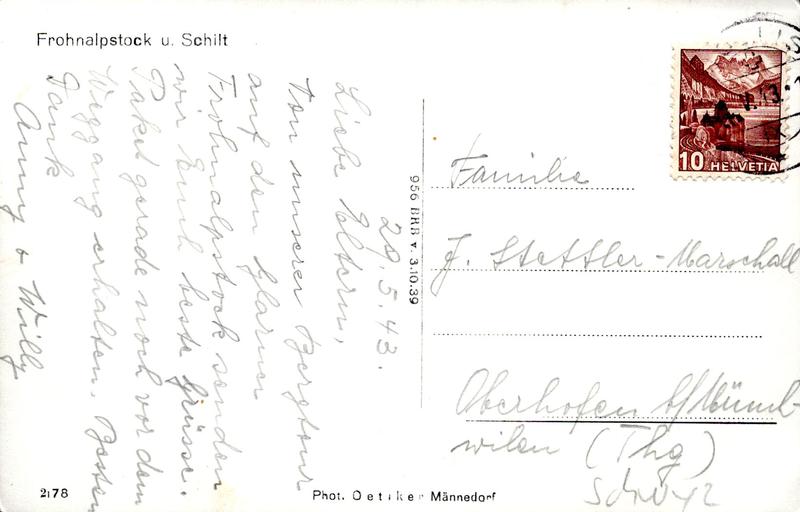 Frohnalpstock u. Schilt
29.5.43.
Liebe Eltern,
Von unserer Bergtour
auf den Glarner
Frohnalpstock senden
wir Euch beste Grüsse.
Paket gerade noch vor dem
Weggang erhalten. Besten
Dank
Anny & Willy
956 BRB v. 3.10.39
10 HELVETIA
Familie
J. Stettler-Marschall
Oberhofen b/Münch-
wilen (Thg)
Schwyz
2178
Phot. Oetiker Männedorf